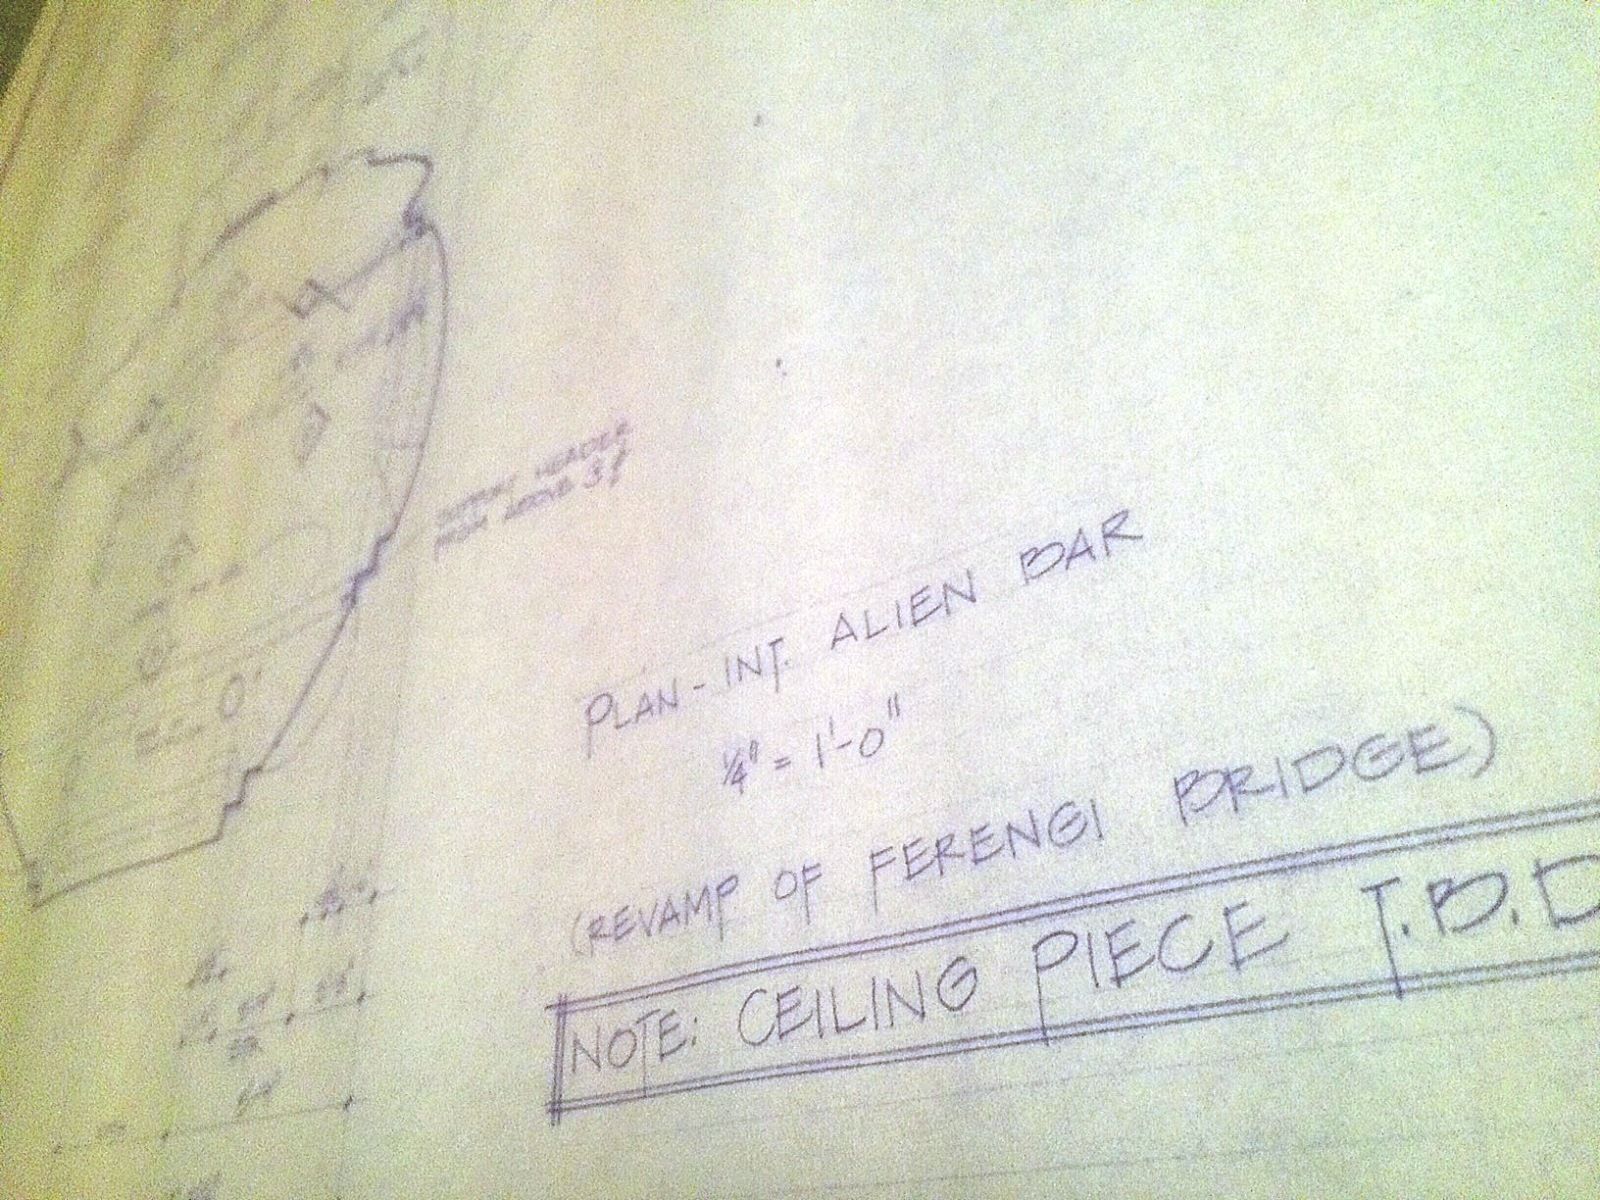 HEADER
FROM ABOVE
PLAN - INT. ALIEN BAR
1/4" = 1'-0"
(REVAMP OF FERENGI BRIDGE)
NOTE: CEILING PIECE T.B.D